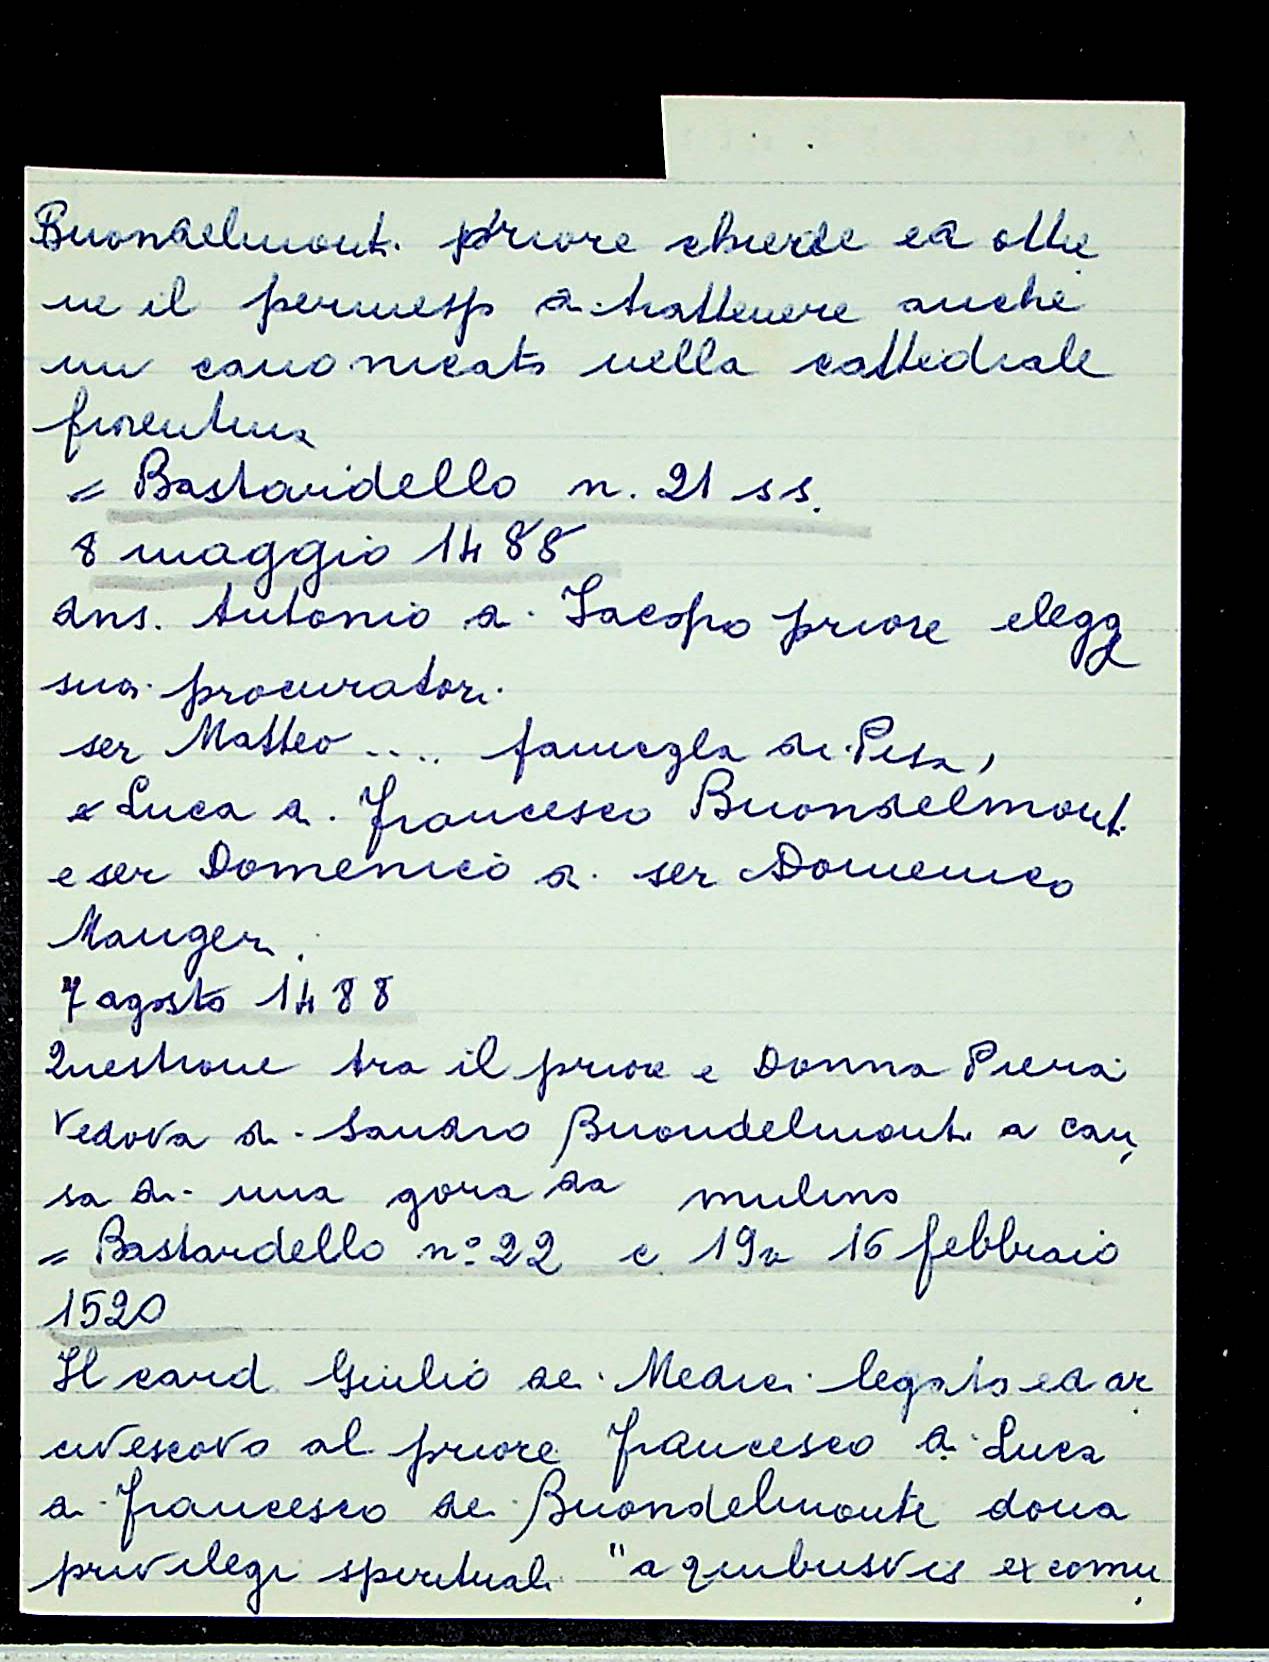 Buondelmonti priore chiede ed otte
ne il permesso di trattenere anche
un canonicato nella cattedrale
fiorentina
= Bastardello n. 21 ss.
8 maggio 1488
Antonio di Iacopo priore elegg
suoi procuratori
ser Matteo .... famiglia di Pisa,
e Luca di Francesco Buondelmonti
e ser Domenico di ser Domenico
7 agosto 1488
Questione tra il priore e Donna Piera
vedova di Sandro Buondelmonti a cau,
sa di una gora da mulino
= Bastardello n° 22 c 19v 16 febbraio
1520
Il card. Giulio dei Medici legato ed ar
civescovo al priore Francesco di Luca
di Francesco dei Buondelmonti dona
privilegi spirituali "a quibusvis excomu